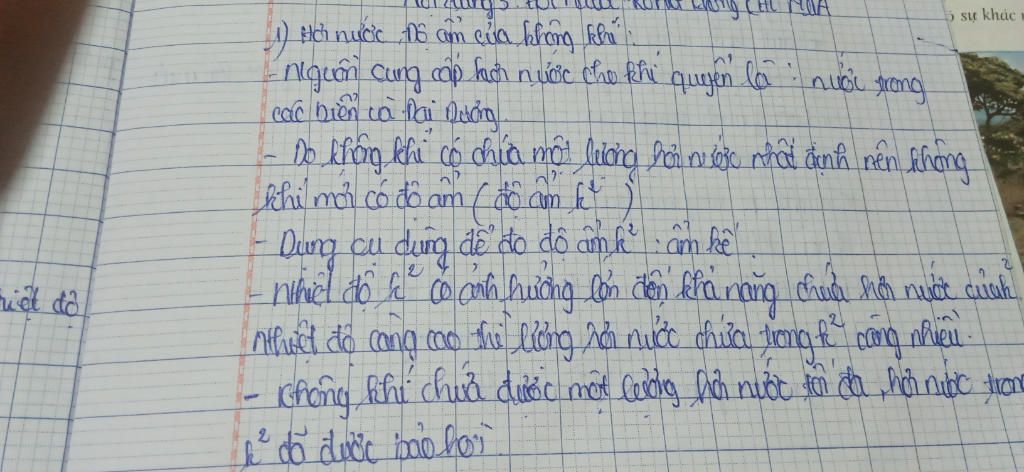 1) Hơi nước, Độ ẩm của không khí:
- nguồn cung cấp hơi nước cho khí quyển là: nước trong
các biển cà Đại Dương.
- Do không khí có chứa một lượng hơi nước nhất định nên không
khí mới có độ ẩm (độ ẩm k²)
- Dụng cụ dùng để đo độ ẩm k²: ẩm kế.
- nhiệt độ k² có ảnh hưởng lớn đến khả năng chứa hơi nước của k²
nhiệt độ càng cao thì lượng hơi nước chứa trong k² càng nhiều.
- Không khí chứa được một lượng hơi nước tối đa, hơi nước tron
k² đã được bảo hơi
sự khác
độ